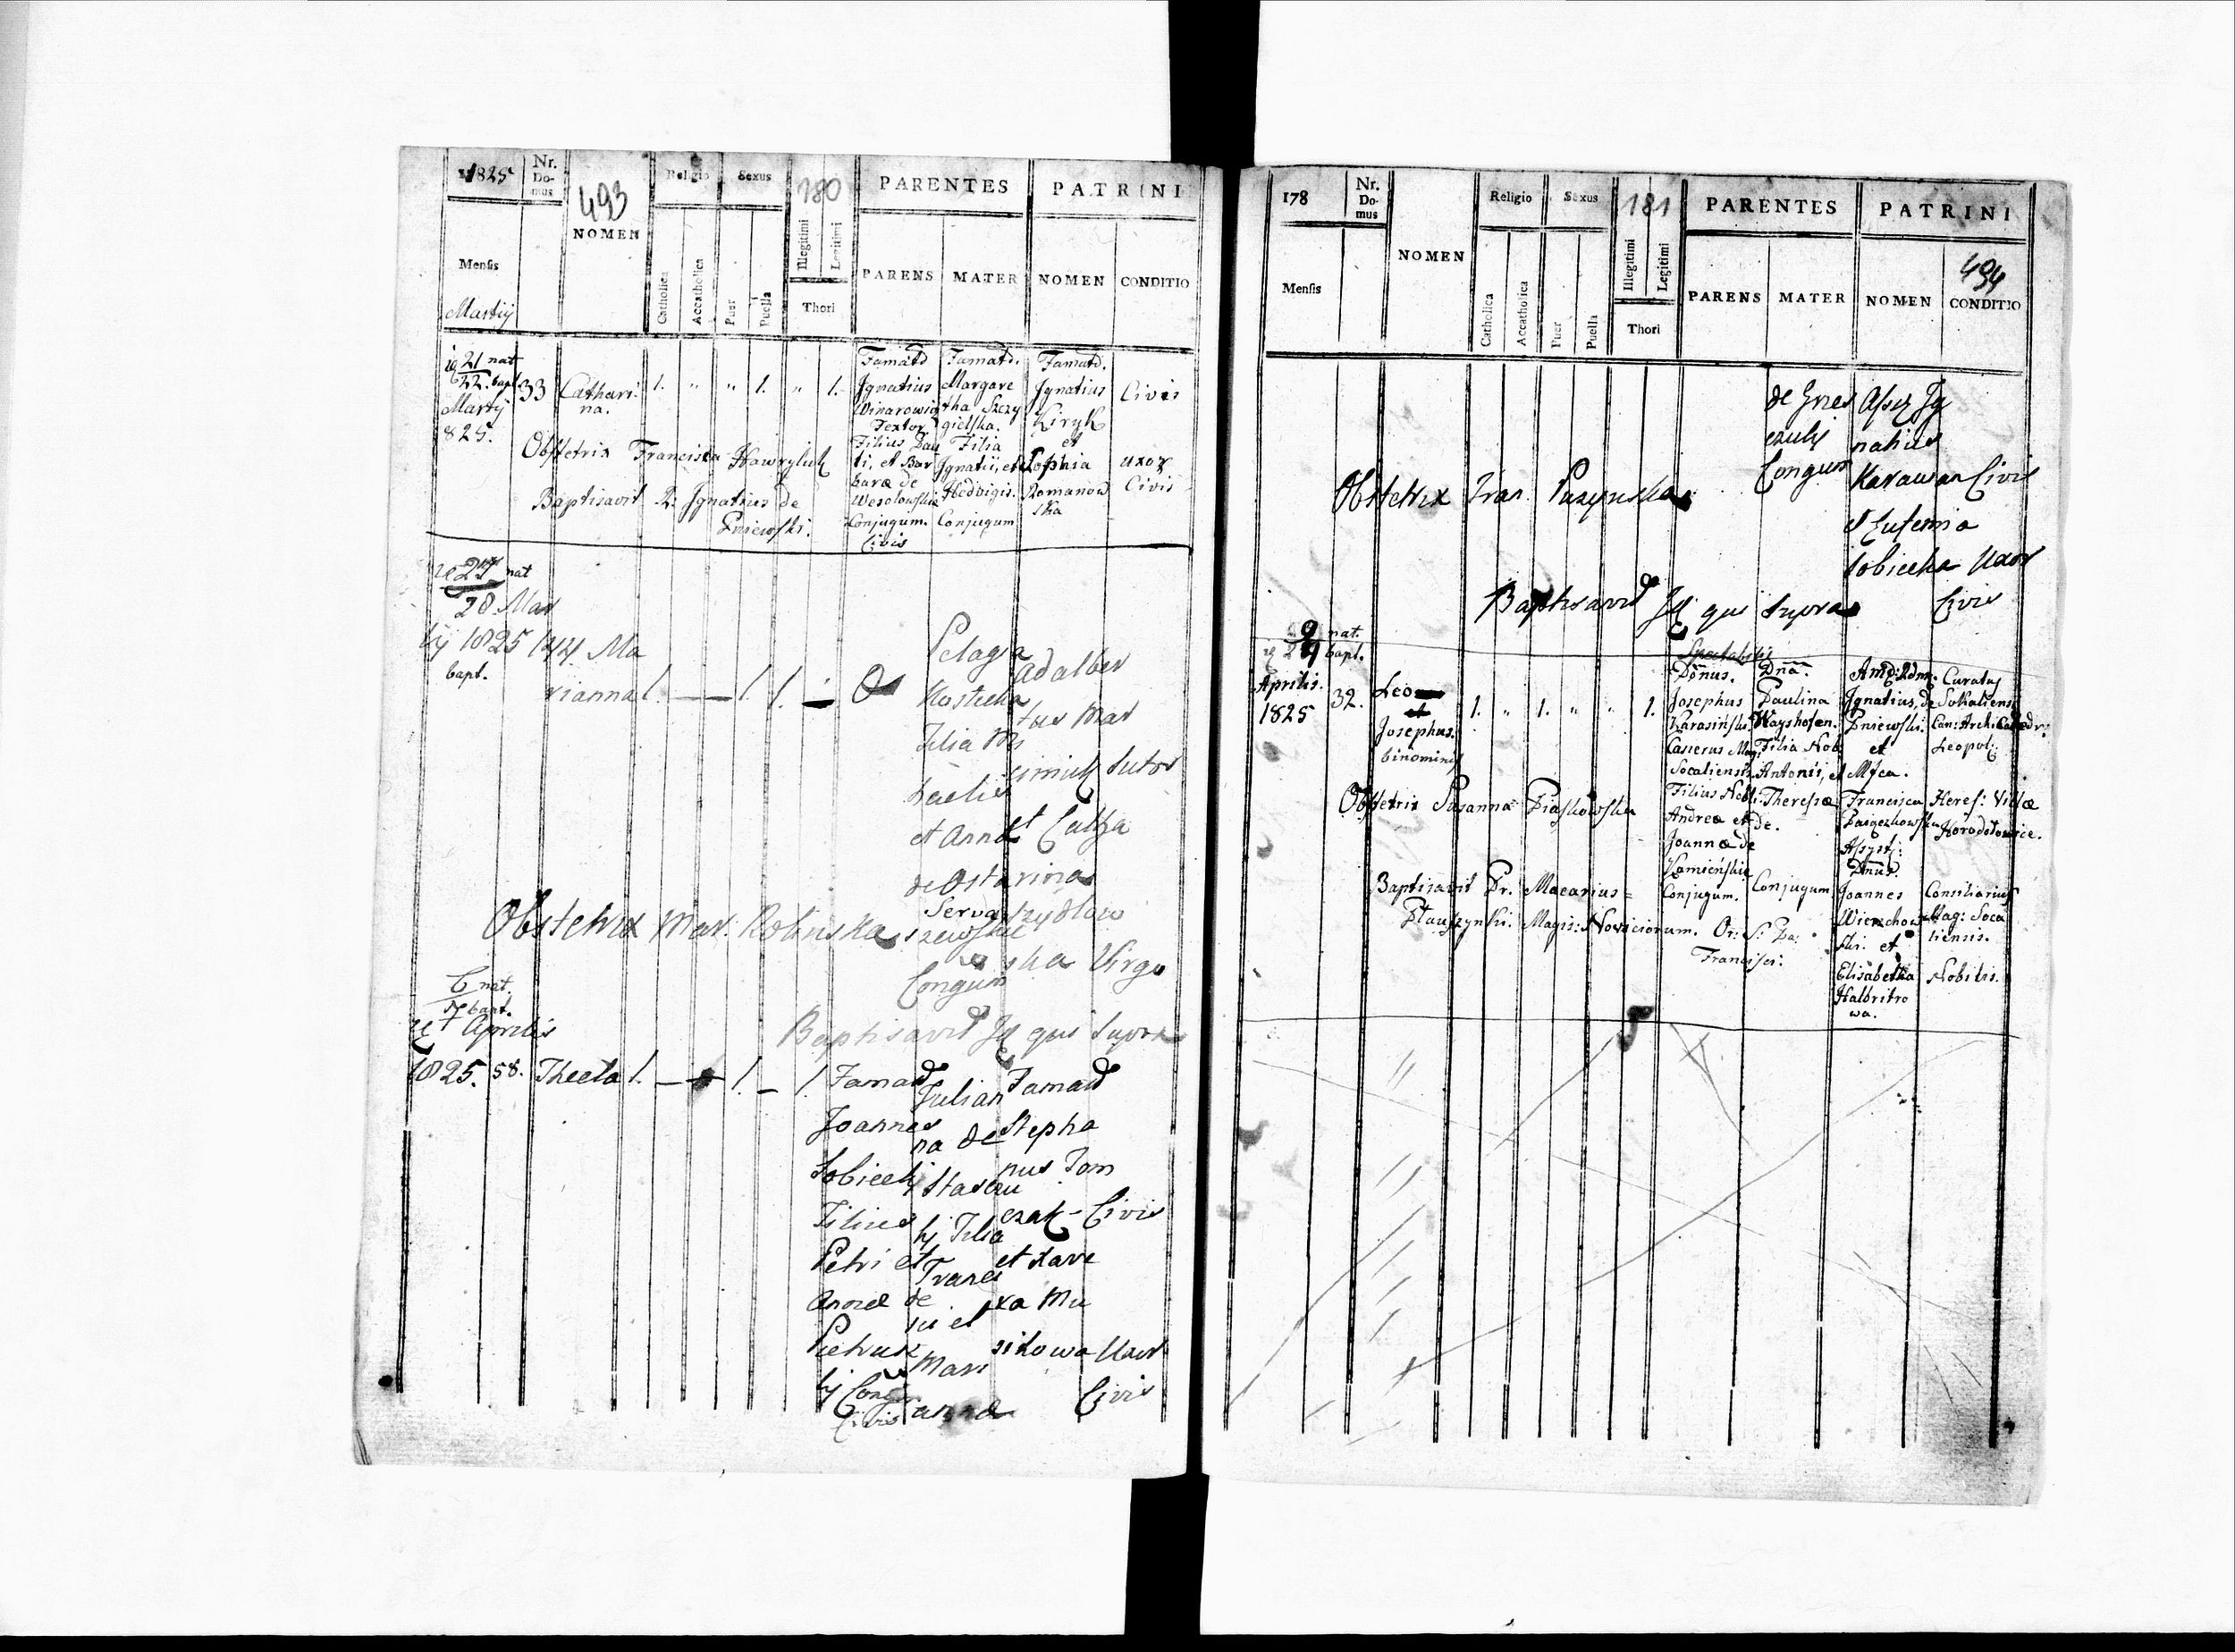 1825 Nr. Domus 493 NOMEN Religio Sexus 180 PARENTES PATRINI
Mensis Catholica Accatholica Puer Puella Illegitimi Legitimi Thori PARENS MATER NOMEN CONDITIO
Martij
21 nat
22. bapt.
Martij
825.
33
Cathari
na.
1. " " 1. " 1.
Famatd
Ignatius
Winarowicz
Textor
Filius Pau
li, et Bar
baræ de
Wesołowskie
Conjugum.
Civis
Famatd.
Margare
tha Szczy
gielska.
Filia
Ignatii, et
Hedvigis.
Conjugum
Famatd.
Ignatius
Kiryk
et
Sophia
Romanow
ska
Civis
uxor
Civis
Obstetrix Francisca Hawryluk
Baptisavit R: Ignatius de
Pniewski.
27 nat
28 Mar
tij 1825
bapt.
144
Ma
rianna
1. — — 1. 1. —
Pelagia
Kostecka
Filia Mi
haelis
et Annæ
de Osta
Serva
szewskie
Congum
Adalber
tus Mar
ciniuk Sutor
et Catha
rina
szydłow
ska Virgo
Obstetrix Mar. Robinska
Baptisavit Id qui Supra
6 nat.
7 bapt.
Aprilis
1825.
58.
Thecla
1. — — 1. — 1.
Famatd
Joannes
Sobiecki
Filius
Petri et
Annæ de
Pietrusz
kj Cong
Civis
Julian
na de
Staszu
kj Filia
Franci
sci et
Mari
annæ
Famatd
Stepha
nus Tom
czak - Civis
et Xave
ra Mu
sikowa Uxor
Civis
178 Nr. Domus NOMEN Religio Sexus 181 PARENTES PATRINI
494
Mensis Catholica Accatholica Puer Puella Illegitimi Legitimi Thori PARENS MATER NOMEN CONDITIO
de Gnes
Congum
Assz Ig
natius
Karawan Civis
et Eufemia
Sobiecka Uxor
Civis
Obstetrix Fran. Puzynska
Baptisavit Id qui Supra
9 nat.
24 bapt.
Aprilis.
1825
32.
Leo
et
Josephus.
binominis
1. " 1. " " 1.
Spectabilis
Dōnus.
Josephus
Karasiński
Casserus Mag:
Socaliensis
Filius Nobl:
Andreæ et
Joannæ de
Kamieńskie
Conjugum.
Dnā.
Paulina
Wayshofen.
Filia Nob:
Antonii, et
Theresiæ
de.
Conjugum
Amd: Rdm.
Ignatius, de
Pniewski.
et
Mfca.
Francisca
Assyst:
Dnus.
Joannes
Wierzchow
ski. et
Elisabetha
Halbritro
wa.
Curatus
Sokaliensis
Can: Archi Cathedr:
Leopol:
Heres: Villæ
Horodłowice.
Consiliarius
Mag: Soca
liensis.
Nobilis.
Obstetrix Susanna Piaskowska
Baptisavit Pr. Macarius =
Ptaszynski. Magis: Noviciorum. Or: S: Pa:
Francisci: